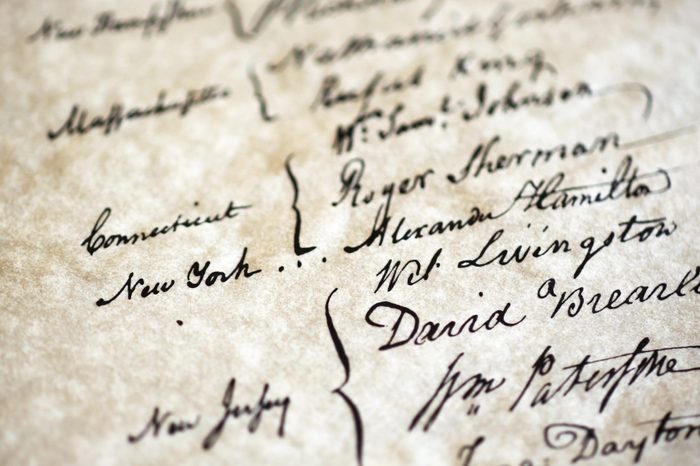 New Hampshire {
Massachusetts {
Nathaniel Gorham
Rufus King
Connecticut {
Wm. Saml. Johnson
Roger Sherman
New York . . . Alexander Hamilton
New Jersey {
Wil. Livingston
David Brearl
Wm. Paterson
Dayton